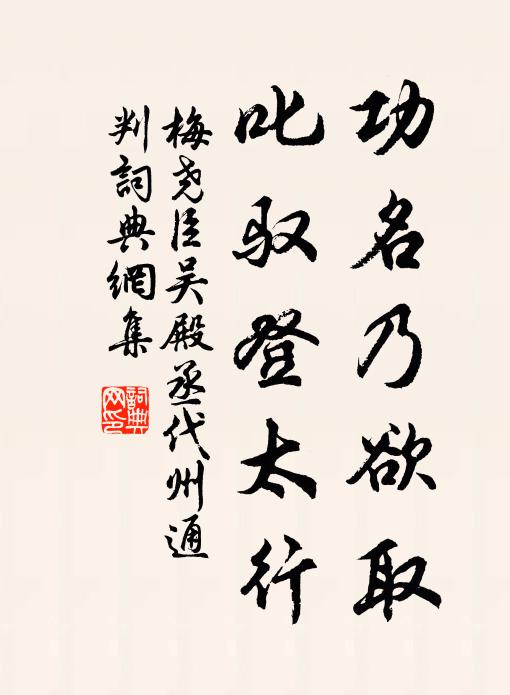 功名乃欲取
叱驭登太行
梅尧臣吴殿丞代州通
判詞典網集
詞典
网印